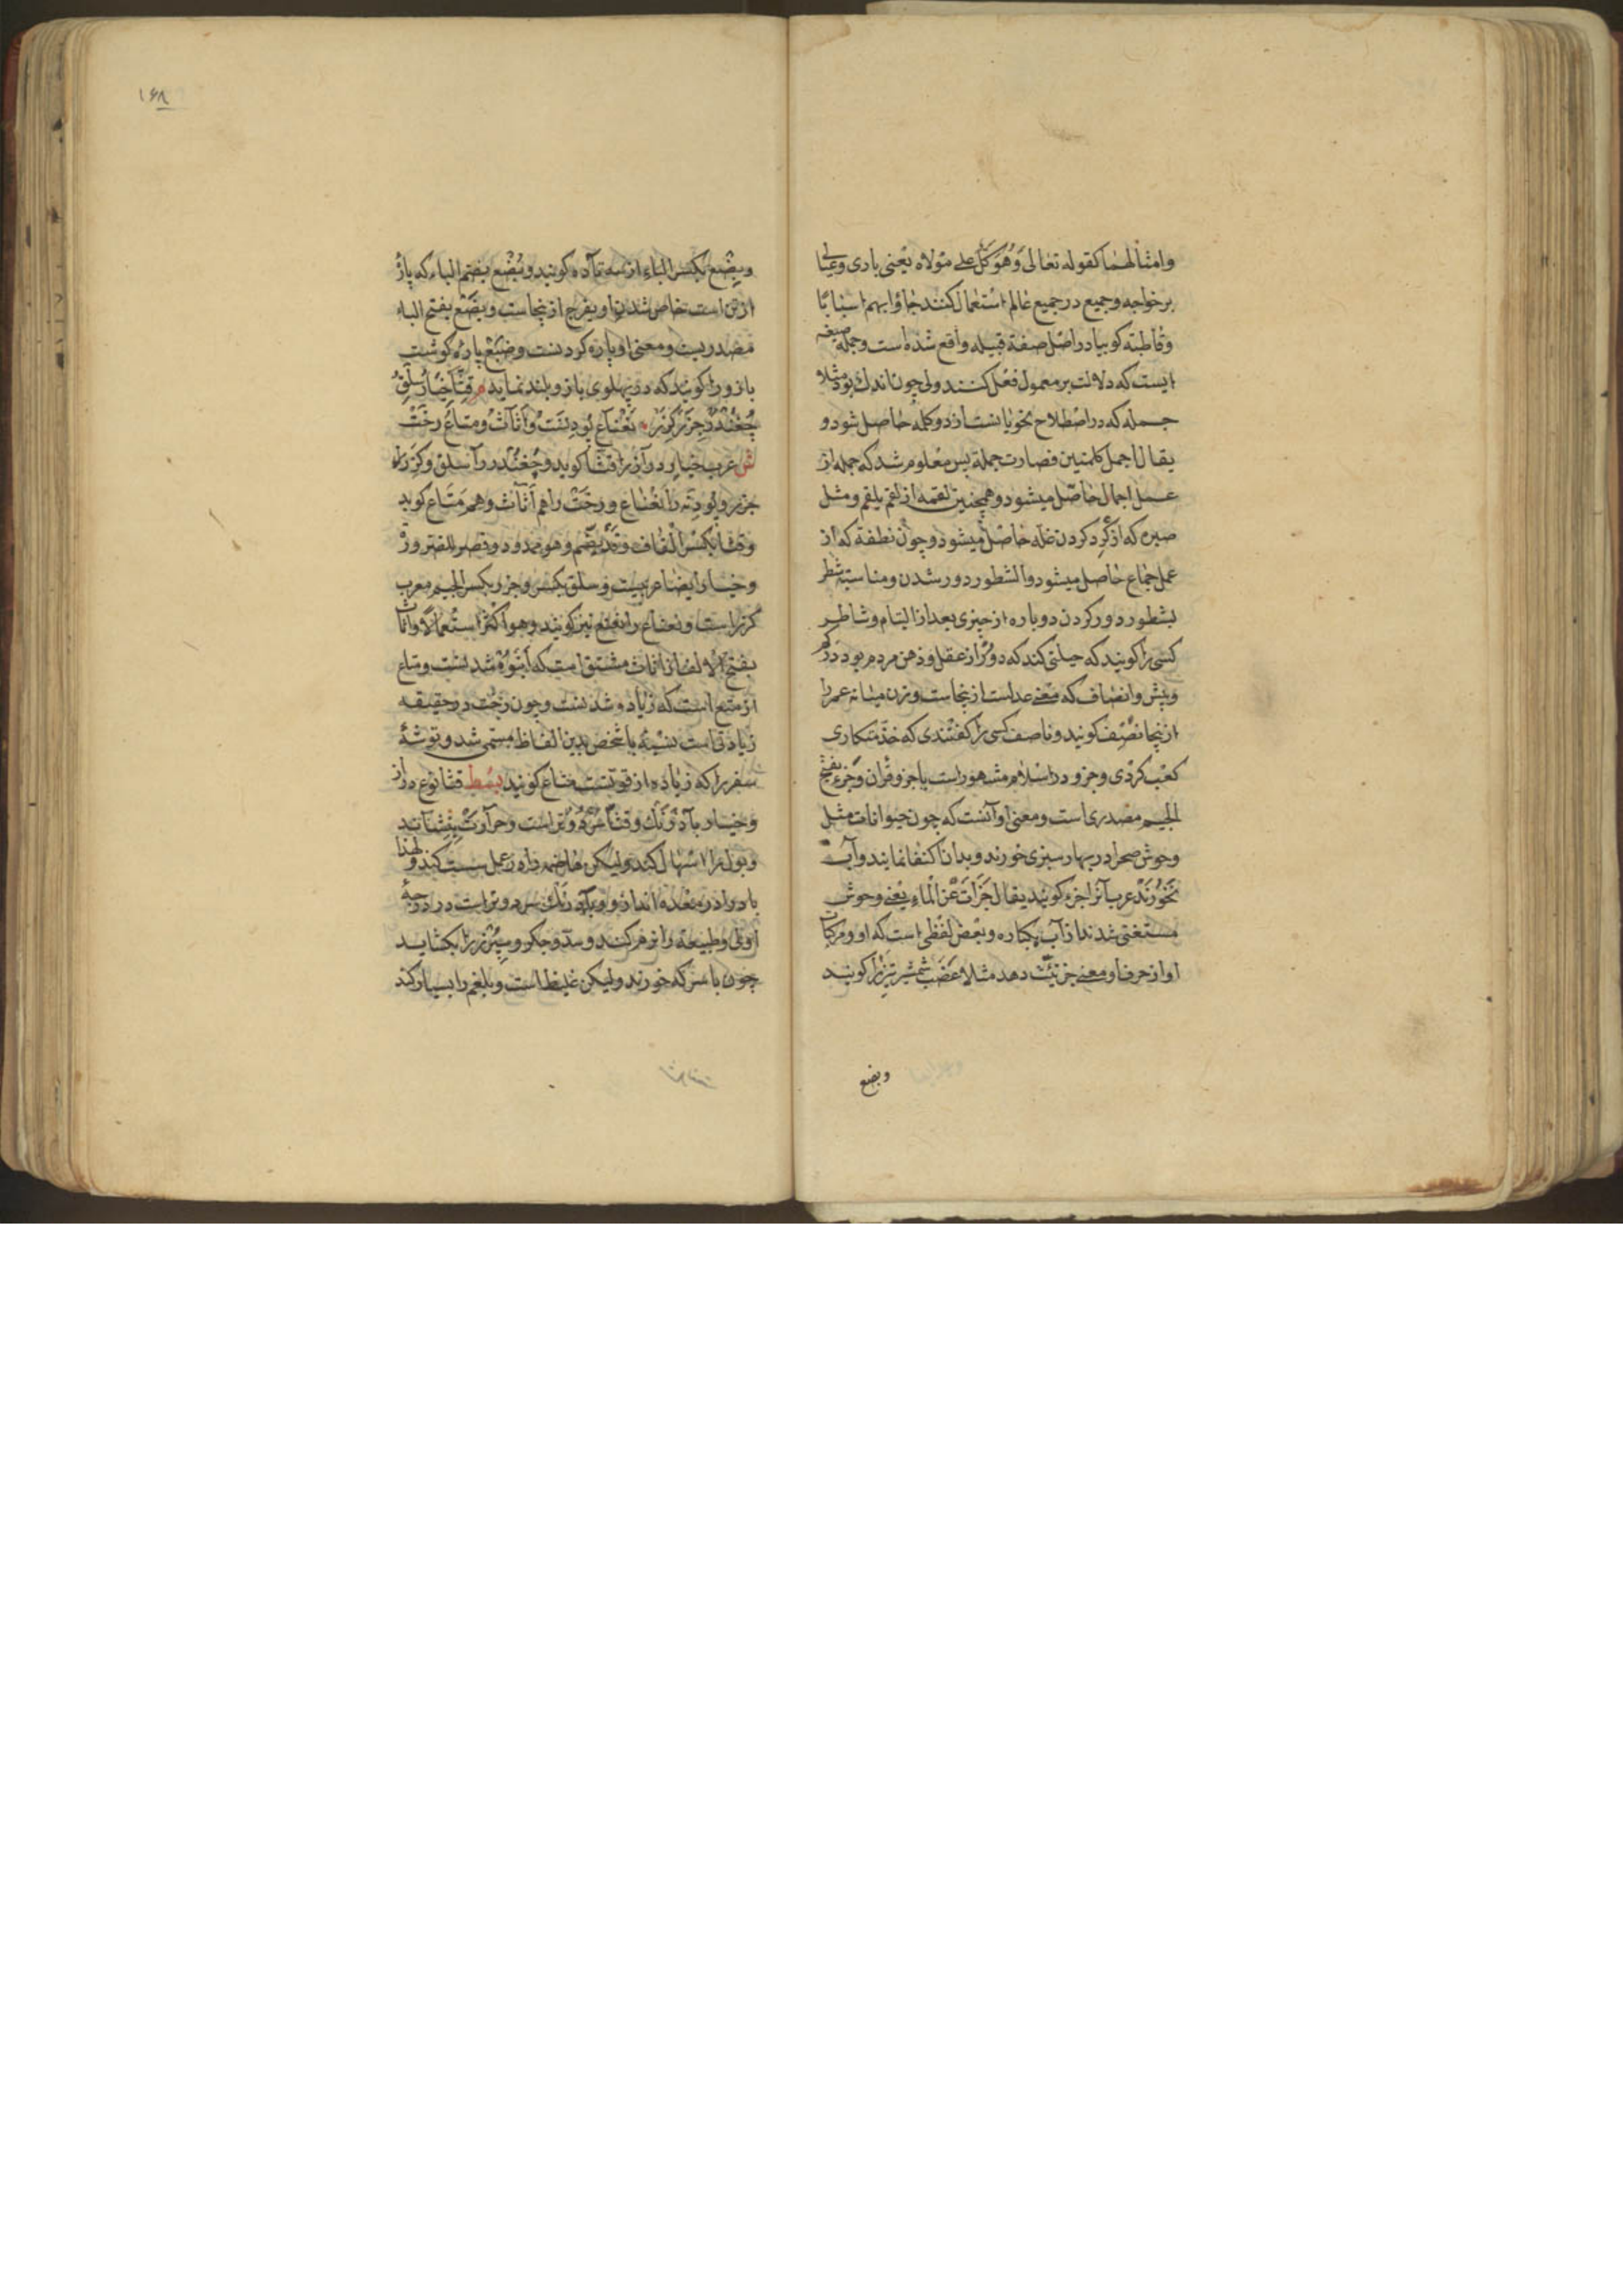 وامثالهما كقوله تعالى وَهُوَ كَلٌّ على مولاه يعنى بارى وعيالى
بر خواجه وجميع در جميع عالم استعمال كنند جاؤا بهم
وقاطبة كوبيا در اصل صفة قبيله واقع شده است وجمله صيغه
ايست كه دلالت بر معمول فعل كنند ولى چون اندك بود مثلا
جمله كه در اصطلاح نحويانست از دو كلمه حاصل شود و
يقال اجمل كلمتين فصارت جملة پس معلوم شد كه جمله از
عمل اجمال حاصل ميشود وهمچنين لقمه از لقم يلقم ومثل
صبره كه از گرد كردن غله حاصل ميشود وچون نطفة كه از
عمل جماع حاصل ميشود والشطور دور شدن ومناسبة شطر
بشطور دور كردن دو پاره از چيزى بعد از التيام وشاطر
كسى را كويند كه حيلتى كند كه دور از عقل وذهن مردم بود
وانصاف كه معنى عدلست ازينجاست وزن ميانه عمر را
ازينجا نصف كويند وناصف كسى را كفتندى كه خدمتكارى
كعب كردى وجزو در اسلام مشهور است باجزو قران وجزء بفتح
الجيم مصدرى است ومعنى او آنست كه چون حيوانات مثل
وحوش صحرا در بهار سبزى خورند وبدان اكتفا نمايند وآب
نخورند عرب آنرا جزء كويند يقال جَزَأت عن الماء يعنى وحوش
مستغنى شدند از آب يكباره وبعض لفظى است كه او ومركبات
او از حرف او معنى جزئيت دهد مثلا عضب شمشير تيز را كويند
وبضع
١٦٨
وبِضع بكسر الباء از سه تا ده كويند وبُضع بضم الباء كه پاره
از تن است خاص شدن او بفرج ازينجاست وبَضع بفتح الباء
مصدريست ومعنى او پاره كردنست وضبع پاره كوشت
بازو را كويند كه در پهلوى بازو بلند نمايد م قِثّا خيار سلق
چُغُندر جزر كزر نَعْناع پودنست واثاث ومتاع رخت
ش عرب خيار دراز را قثّا كويد وچغندر را سلق وكزر را
جزر وپودنه را نعناع ورخت را هم اثاث وهم متاع كويد
وقثا بكسر القاف وقد يضم وهو ممدود وقصر للضرورة
وخيار ايضا عربيست وسلق بكسر وجزر بكسر الجيم معرب
كزر است ونعناع را نعنع نيز كويند وهو اكثر استعمالا واثاث
بفتح الالف از اثاث مشتق است كه انبوه شدنست ومتاع
از متع است كه زياده شدنست وچون رخت در حقيقه
زيادتى است نسبة باشخص بدين الفاظ مسمى شد وتوشهٔ
سفر را كه زياده از قوتست متاع كويند بسط قثا نوع دراز
وخيار بآدرنك وقثا سرد وتر است وحرارت بنشاند
وبول را اسهال كند وليكن هاضمه را در عمل سست كند ولهذا
باد را در معده اندازد وبآدرنك سرد وتر است در درجهٔ
اولى وطبيعة را نرم كند وسدّه جكر وسپرز را بكشايد
چون با سركه خورند وليكن غليظ است وبلغم را بسيار كند